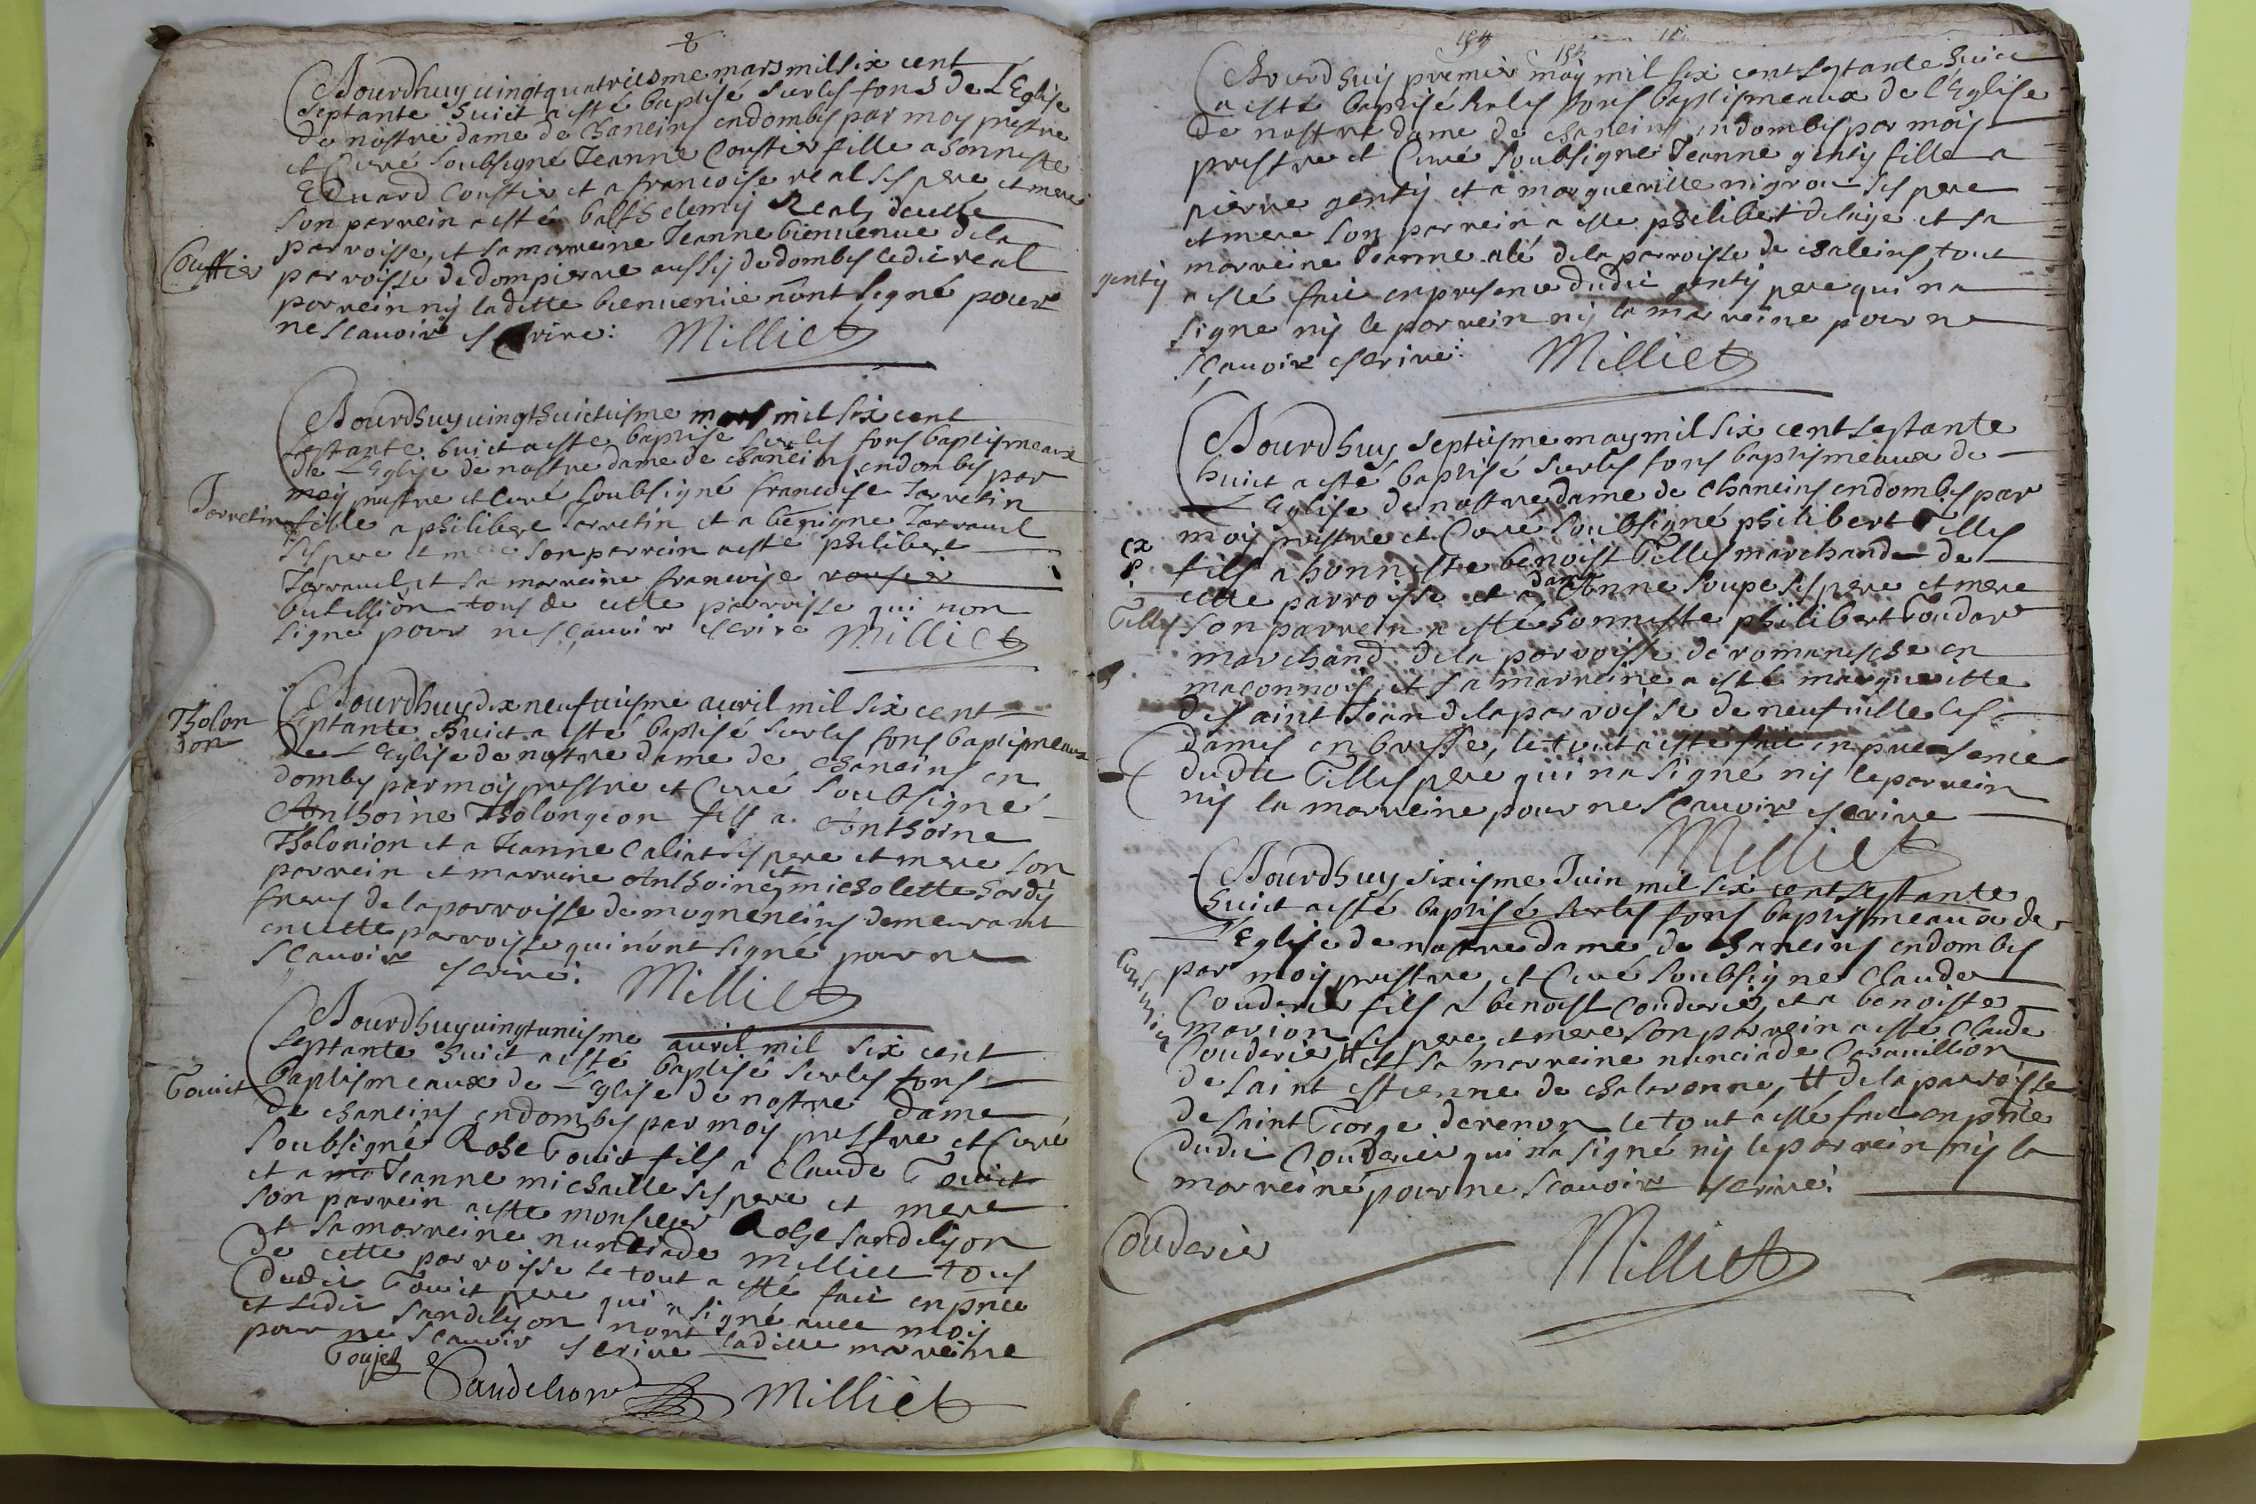 Aourdhuy vingtquatriesme mars mil six cent
septante huict a esté baptisé sur les fons de L'Eglise
de nostre dame de Chaneins en dombes par moy prestre
et Curé soubsigné Jeanne Coustier fille a honneste
Eduard Coustier et a francoise real ses pere et mere
son parrein a esté balthelemy Real de cette
parroisse, et sa marreine Jeanne bienvenue de la
Couttier
parroisse de dompierre aussy de dombes ledit real
parrein ny laditte bienvenue n'ont signé pour
ne scauoir escrire: Milliet
Aourdhuy vingthuictiesme mars mil six cent
septante huict a esté baptisé sur les fons baptismeaux
de L'Eglise de nostre dame de chaneins en dombes par
moy prestre et Curé soubsigné francoise Jarretin
Jarretin
fille a philibert Jarretin et a benigne Jarraud
ses pere et mere son parrein a esté philibert
Jarraud, et sa marreine francoise
butillion tous de cette parroisse qui non
signe pour ne scauoir escrire Milliet
Aourdhuy dix neufuiesme auril mil six cent
Tholon
Jon
septante huict a esté baptisé sur les fons baptismeaux
de L'Eglise de nostre dame de chaneins en
dombes par moy prestre et Curé soubsigné
Anthoine Tholongion fils a Anthoine
Tholonion et a Jeanne Caliat ses pere et mere son
parrein et marreine Anthoine et micholette hardy
freres de la parroisse de mogneneins demeurant
en cette parroisse qui n'ont signé pour ne
scauoir escrire: Milliet
Aourdhuy vingtuniesme auril mil six cent
septante huict a esté baptisé sur les fons
Gouiet
baptismeaux de L'Eglise de nostre dame
de chaneins en dombes par moy prestre et Curé
soubsigné Rose Gouiet fils a Claude Gouiet
et a Jeanne michaille ses pere et mere
son parrein a esté monsieur Rose sandelyon
et sa marreine nunciade Milliet tous
de cette parroisse le tout a esté fait en pñce
dudit Gouiet pere qui a signé auec moy
et ledit sandelyon nont laditte marreine
pour ne scauoir escrire
Goujet Sandelion Milliet
Aourdhuy premier may mil six cent septante huict
a esté baptisé sur les fons baptismeaux de l'Eglise
de nostre dame de chaneins en dombes par moy
prestre et Curé soubsigné Jeanne genty fille a
pierre genty et a margueritte nigrou ses pere
et mere son parrein a esté philibert delaye et sa
marreine Jeanne alé de la parroisse de chaleins, tout
genty
a esté fait en presence dudit genty pere qui na
signe ny le parrein ny la marreine pour ne
scauoir escrire: Milliet
Aourdhuy septiesme may mil six cent septante
huict a esté baptisé sur les fons baptismeaux de
L'Eglise de nostre dame de Chaneins en dombes par
moy prestre et Curé soubsigné philibert Gilles
fils a honneste benoist Gilles marchand de
cette parroisse et a dame Anne soupe ses pere et mere
Gilles
son parrein a esté honneste philibert Goudar
marchand de la parroisse de romanesche en
maconnois, et sa marreine a esté margueritte
de saint Jean de la parroisse de neufuille les
dames en bresse, le tout a esté fait en presence
dudit Gilles pere qui na signé ny le parrein
ny la marreine pour ne scauoir escrire
Milliet
Aourdhuy sixiesme Juin mil six cent septante
huict a esté baptisé sur les fons baptismeaux de
L'Eglise de nostre dame de chaneins en dombes
par moy prestre, et Curé soubsigne Claude
Couderier fils a benoist Couderier, et a benoiste
marion ses pere et mere son parrein a esté Claude
Couderier, # et sa marreine nunciade Carauillion
de saint estienne de chalaronne, # de la parroisse
de saint George de renon le tout a esté fait en pñce
dudit Couderier qui na signé ny le parrein ny la
marreine pour ne scauoir escrire:
Couderier
Milliet